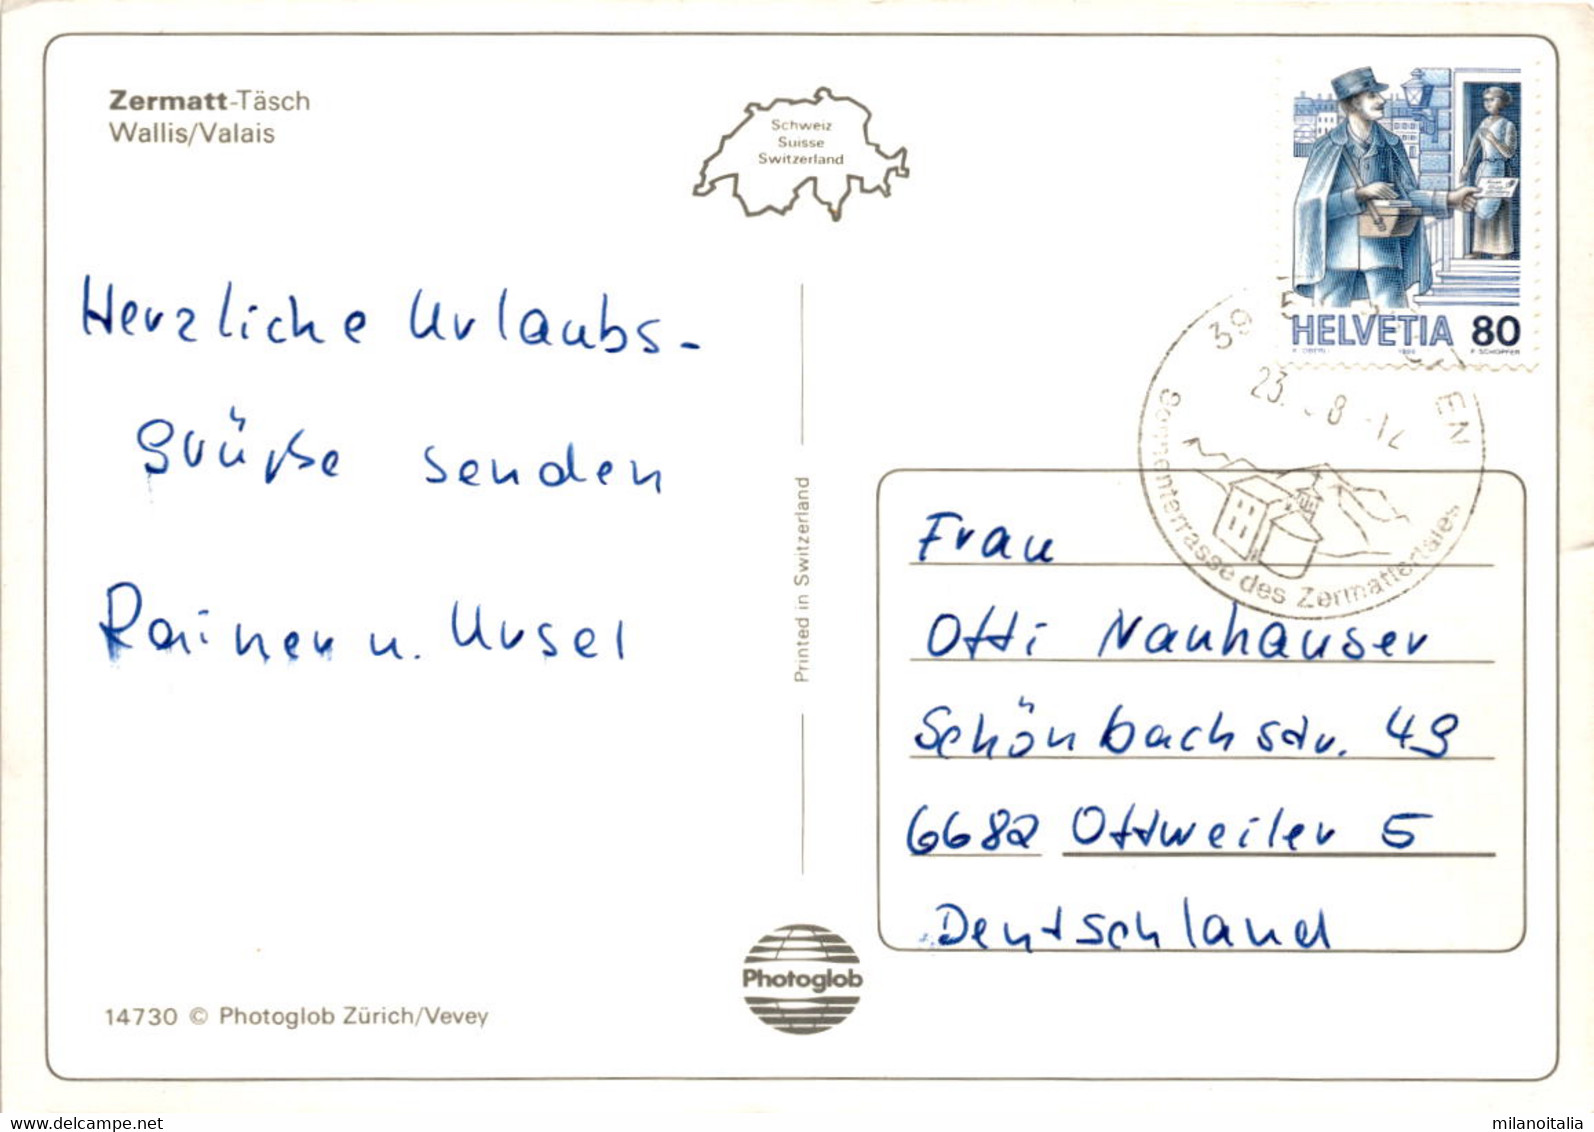 Zermatt-Täsch
Wallis/Valais
Schweiz
Suisse
Switzerland
HELVETIA 80
F SCHOPFER
39
EN
23. 8
Sonnenterrasse des Zermattertales
Herzliche Urlaubs-
grüße senden
Rainer u. Ursel
Printed in Switzerland
Frau
Otti Nauhauser
Schönbachstr. 49
6682 Ottweiler 5
Deutschland
Photoglob
14730 © Photoglob Zürich/Vevey
delcampe.net
milanoitalia